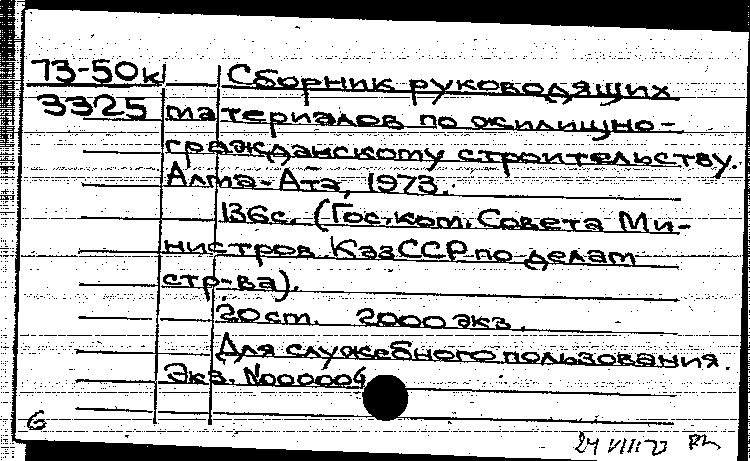 73-50к Сборник руководящих
3325 материалов по жилищно-
гражданскому строительству.
Алма-Ата, 1973.
136с. (Гос.ком. Совета Ми-
нистров КазССР по делам
стр-ва).
20 см. 2000 экз.
Для служебного пользования.
Экз. №000004
6
24 VIII 73